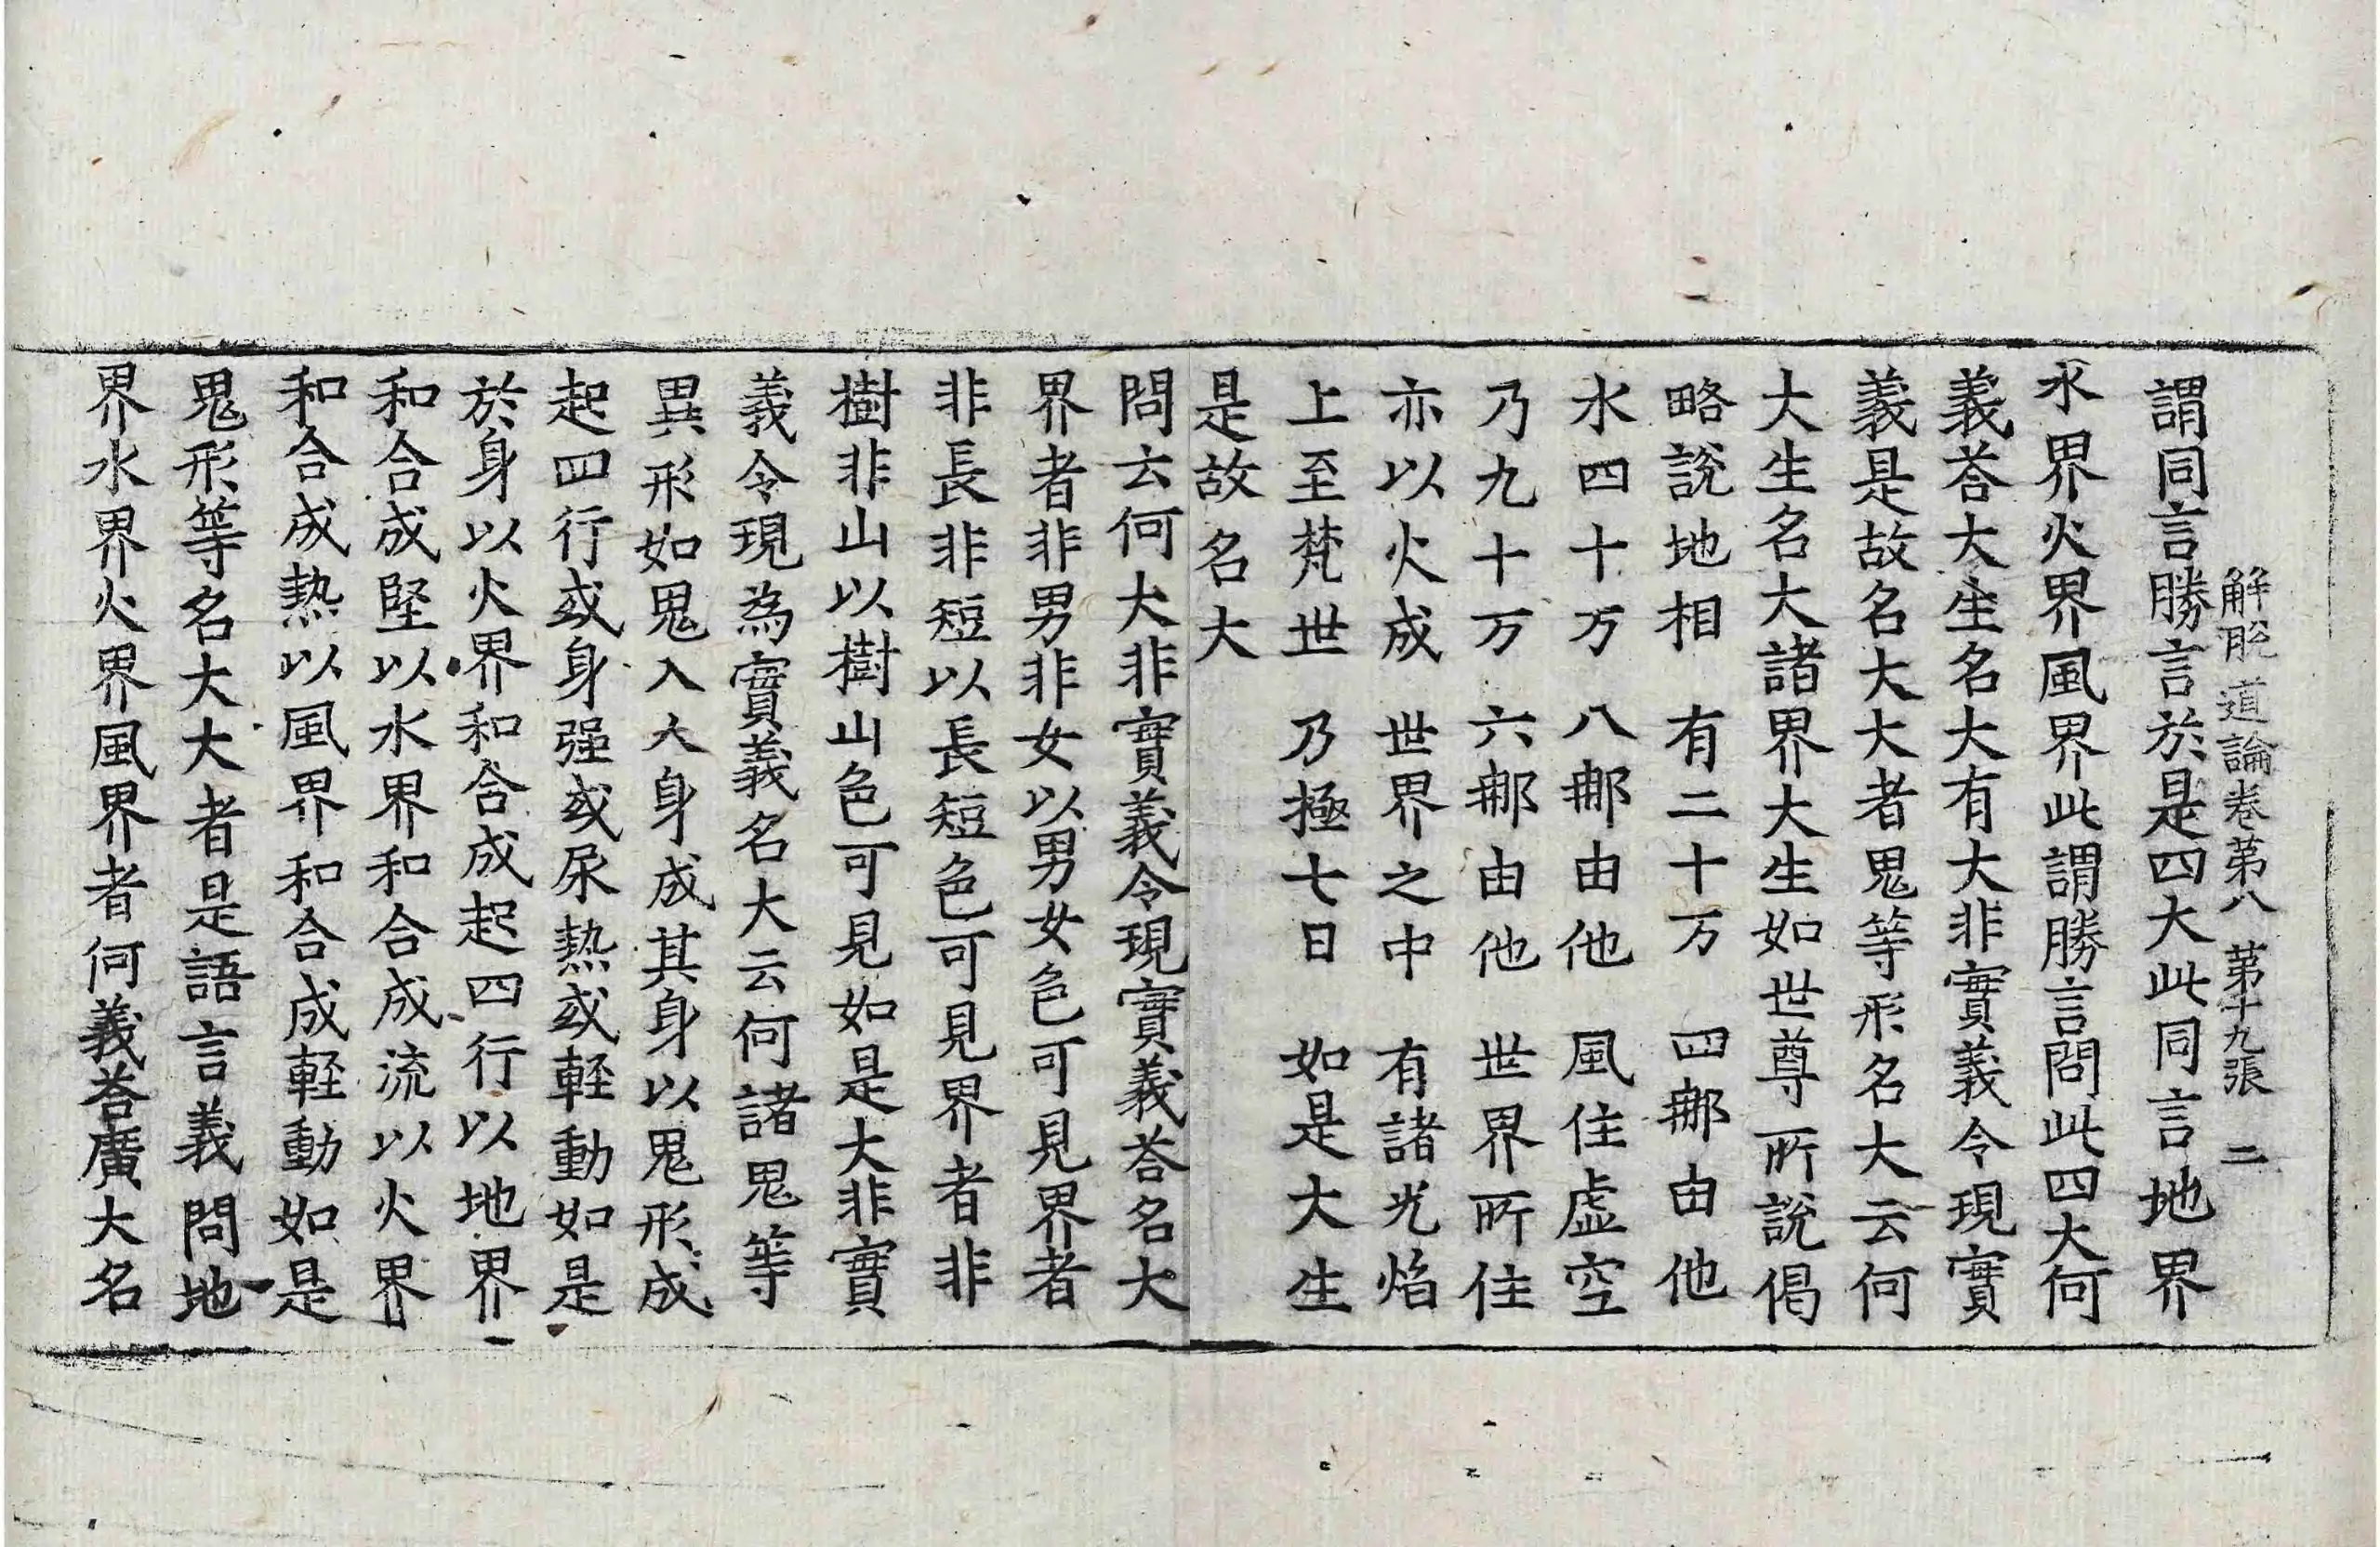 解脫道論卷第八 第十九張 二
謂同言勝言於是四大此同言地界
水界火界風界此謂勝言問此四大何
義荅大生名大有大非實義令現實
義是故名大大者鬼等形名大云何
大生名大諸界大生如世尊所說偈
略說地相 有二十万 四𨚗由他
水四十万 八𨚗由他 風住虛空
乃九十万 六𨚗由他 世界所住
亦以火成 世界之中 有諸光焰
上至梵世 乃極七日 如是大生
是故名大
問云何大非實義令現實義荅名大
界者非男非女以男女色可見界者
非長非短以長短色可見界者非
樹非山以樹山色可見如是大非實
義令現為實義名大云何諸鬼等
異形如鬼入大身成其身以鬼形成
起四行或身强或尿熱或軽動如是
於身以火界和合成起四行以地界
和合成堅以水界和合成流以火界
和合成熱以風界和合成軽動如是
鬼形等名大大者是語言義問地
界水界火界風界者何義荅廣大名